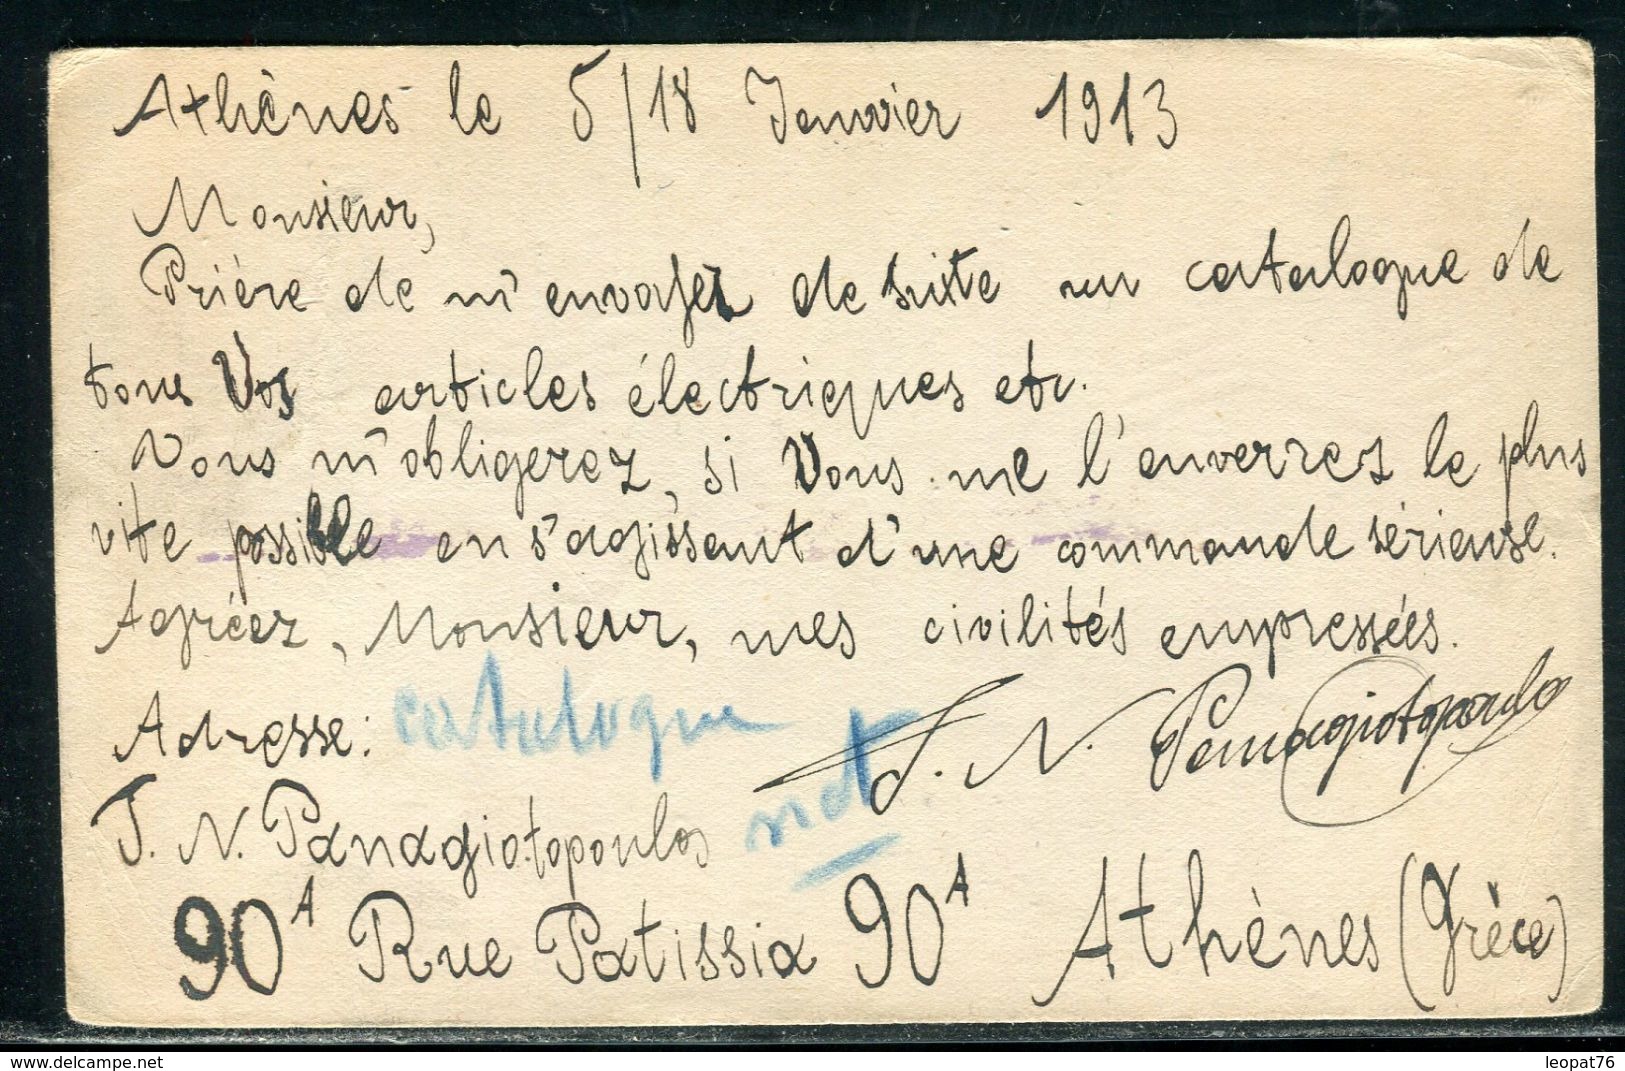 Athènes le 5/18 Janvier 1913
Monsieur,
Prière de m'envoyer de suite un catalogue de
tous Vos articles électriques etc.
Vous m'obligerez, si Vous me l'enverrez le plus
vite possible en s'agissant d'une commande sérieuse.
Agréez, Monsieur, mes civilités empressées.
Adresse: catalogue
J. N. Panagiotopoulo
J. N. Panagiotopoulos
90A Rue Patissia 90A Athènes (Grèce)
delcampe.net
leopat76